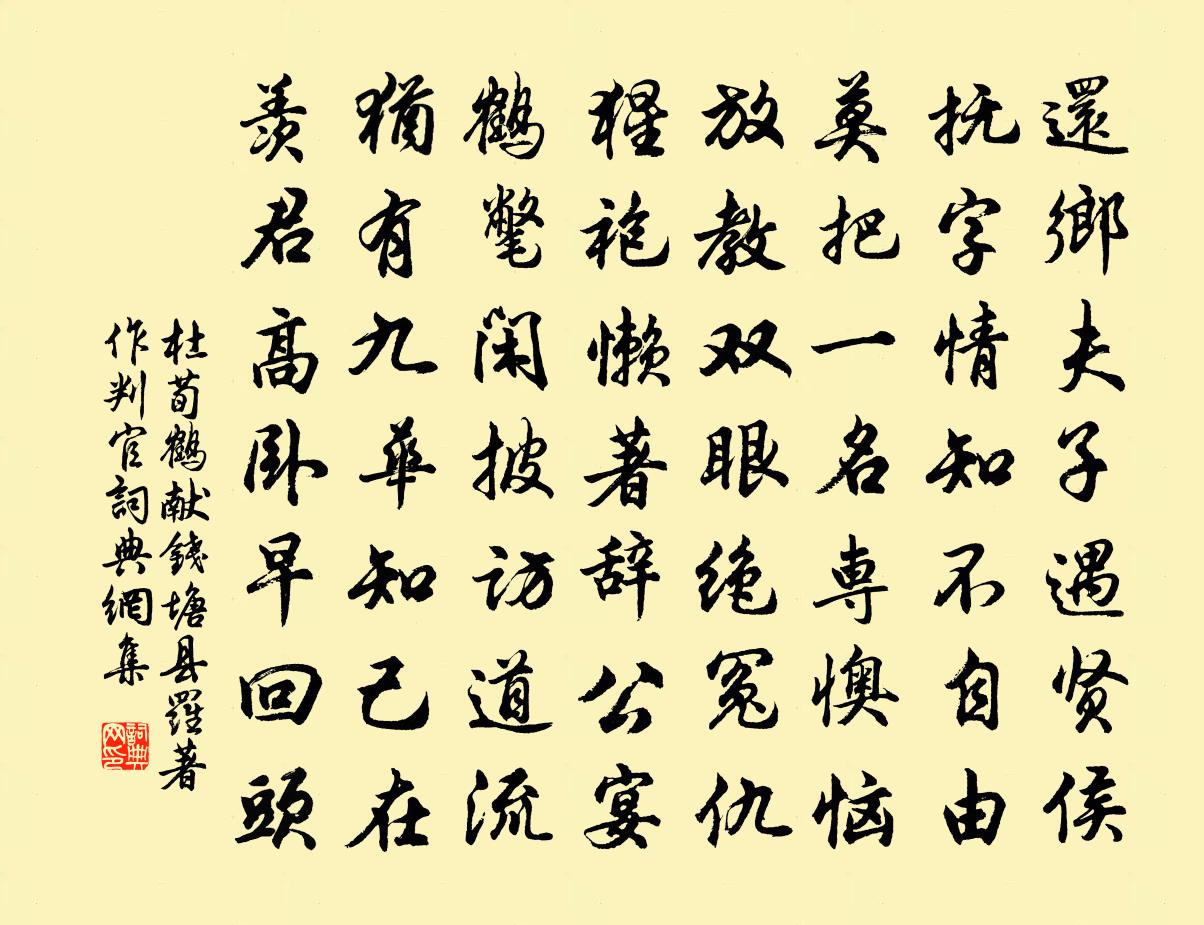 還鄉夫子遇贤侯
抚字情知不自由
莫把一名専懊恼
放教双眼绝冤仇
猩袍懒著辞公宴
鶴氅闲披访道流
猶有九華知己在
羨君高卧早回頭
杜荀鶴献錢塘县羅著
作判官詞典網集
詞典网印